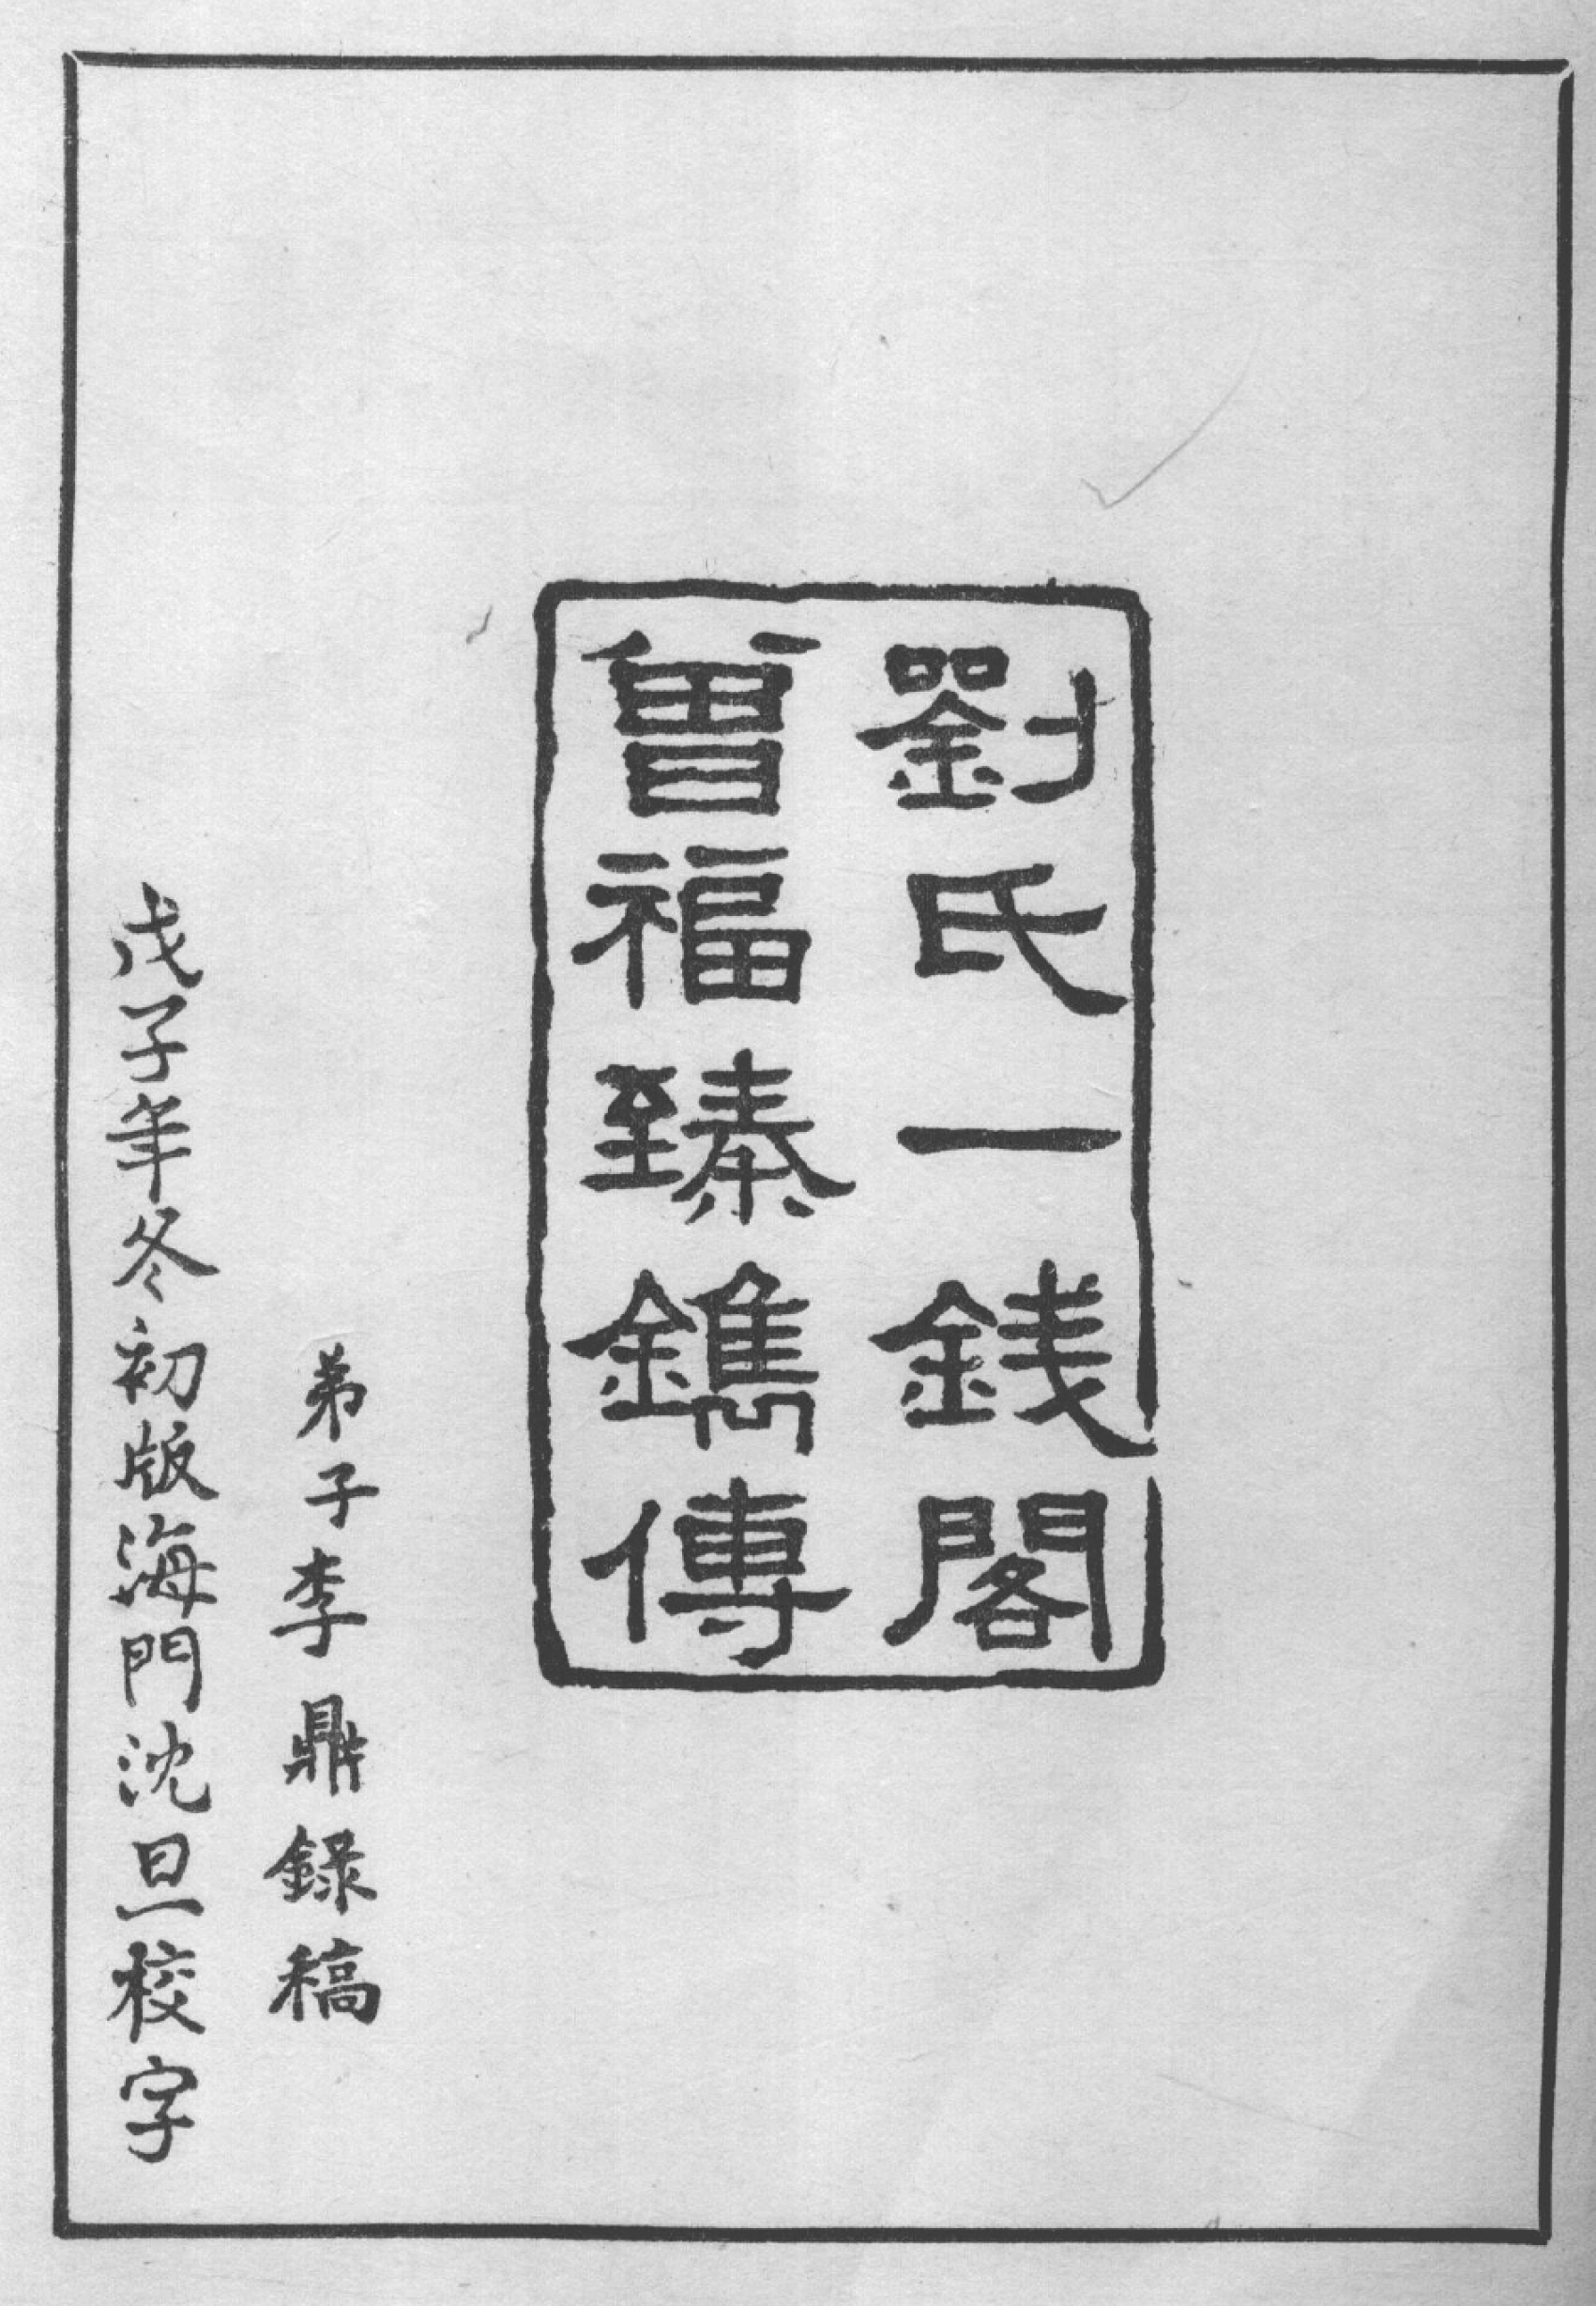 劉氏一錢閣
曾福臻鐫傳
弟子李鼎錄稿
戊子年冬初版海門沈旦校字